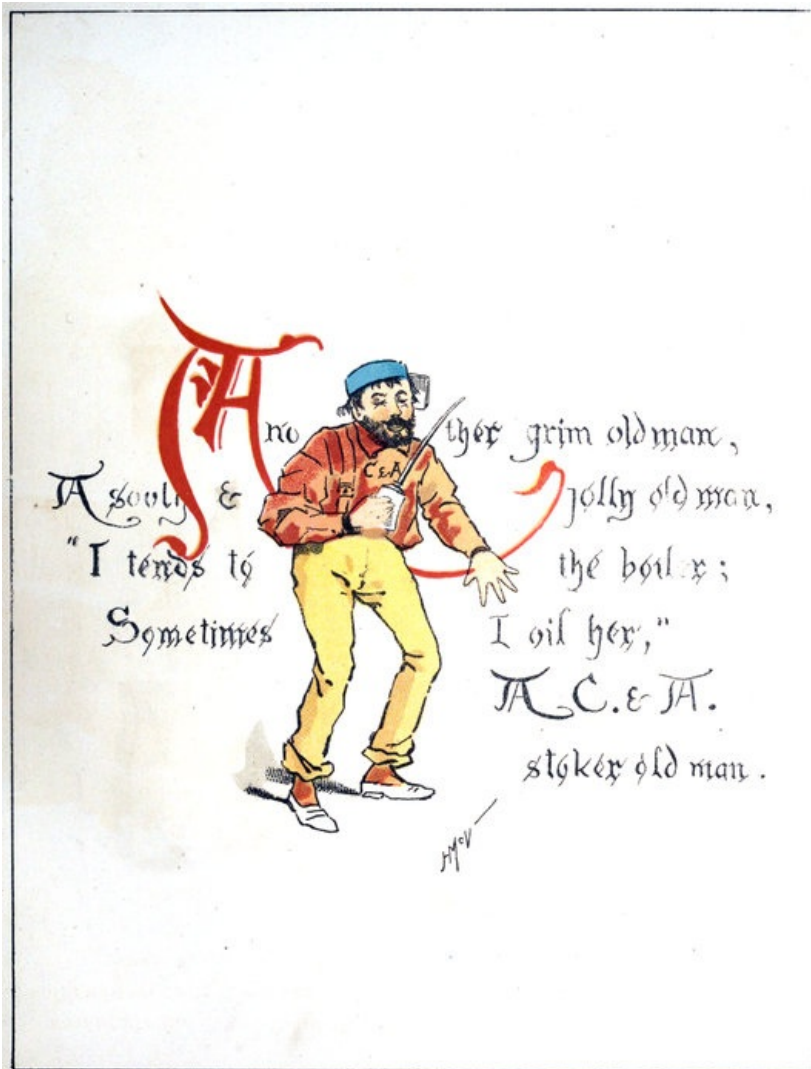 Another grim old man,
A souly & jolly old man,
"I tends to the boiler;
Sometimes I oil her,"
A C. & A.
stoker old man.
C & A
HMcV